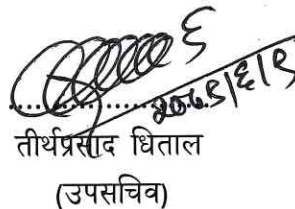 २०७९।६।९
तीर्थप्रसाद धिताल
(उपसचिव)